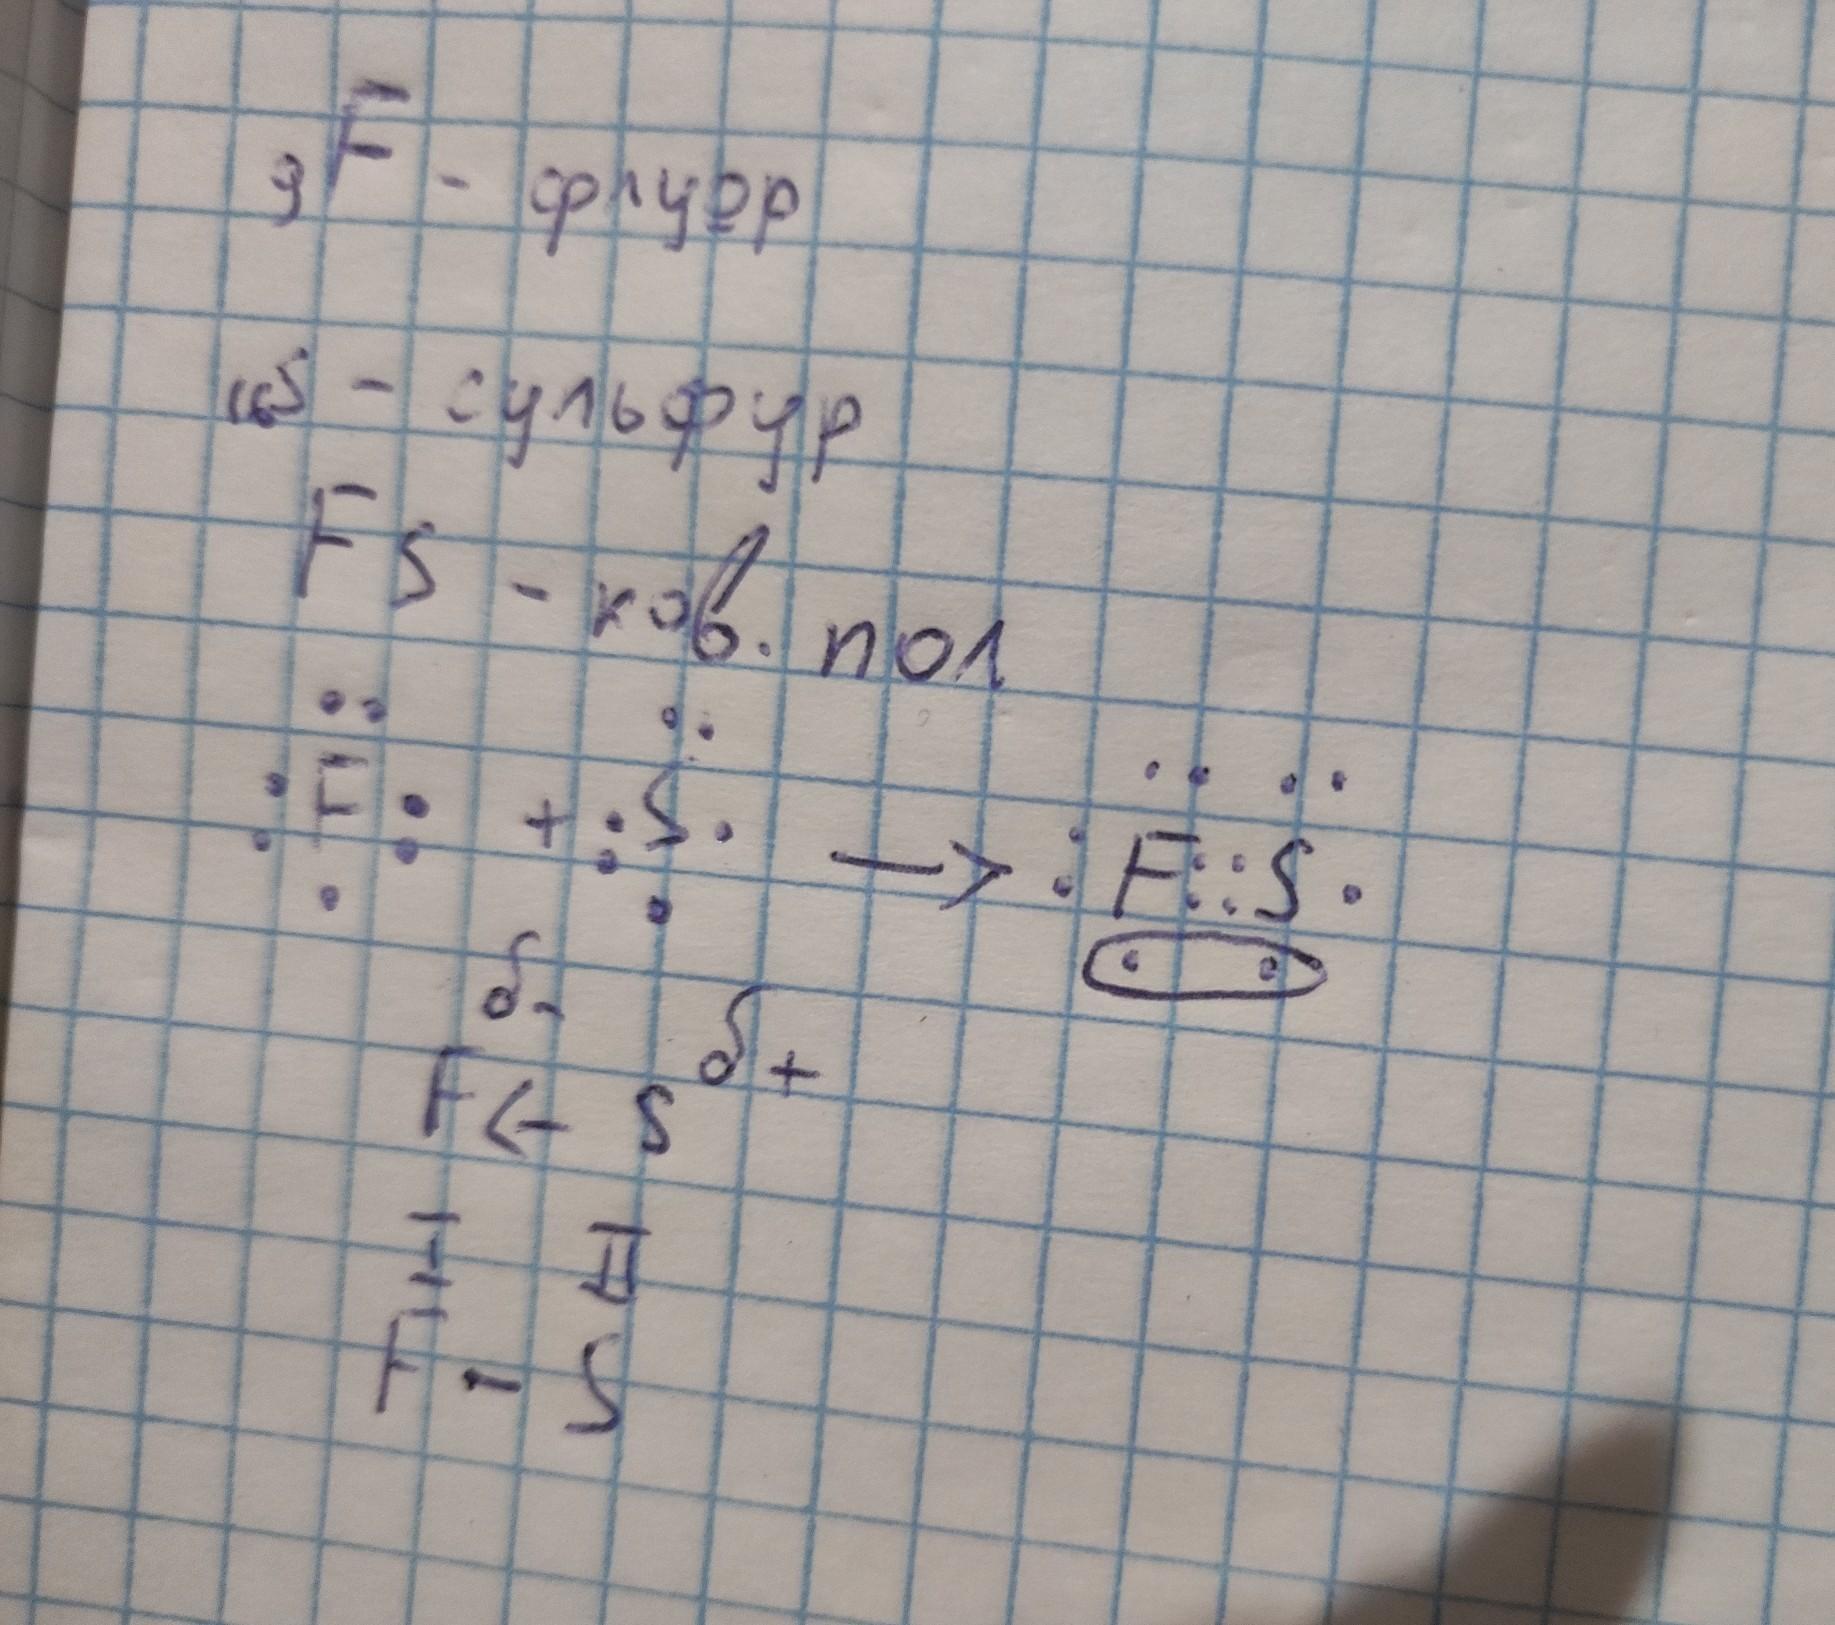 9F - флуор
16S - сульфур
FS - ков. пол
F + S —> F S
δ- δ+
F <- S
I II
F - S